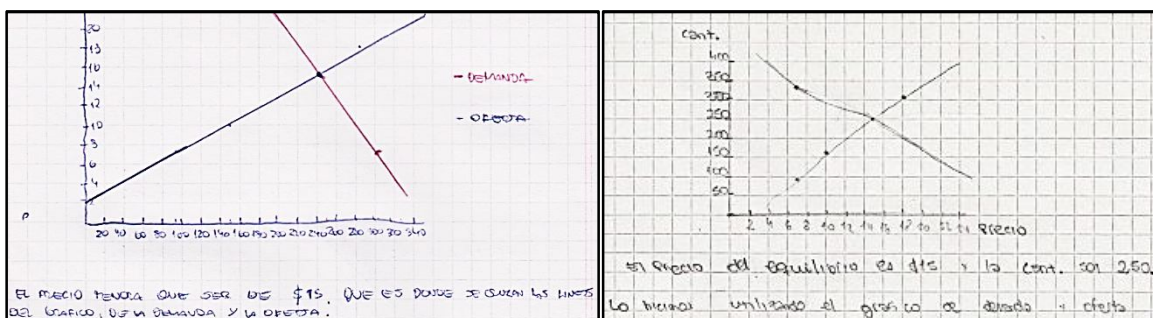 20
18
16
14
12
10
8
6
4
2
P
20 40 60 80 100 120 140 160
- DEMANDA
- OFERTA
EL PRECIO TENDRA QUE SER DE $15, QUE ES DONDE SE CRUZAN LAS LINEAS
DEL GRAFICO, DE LA DEMANDA Y LA OFERTA.
cant.
400
350
300
250
200
150
100
50
2 4 6 8 10 12 14 16 18 precio
El precio del equilibrio es $15 y la cant. son 250.
Lo hicimos utilizando el gráfico de